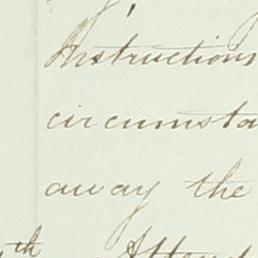 Instructions
circumsta
away the
th Attend